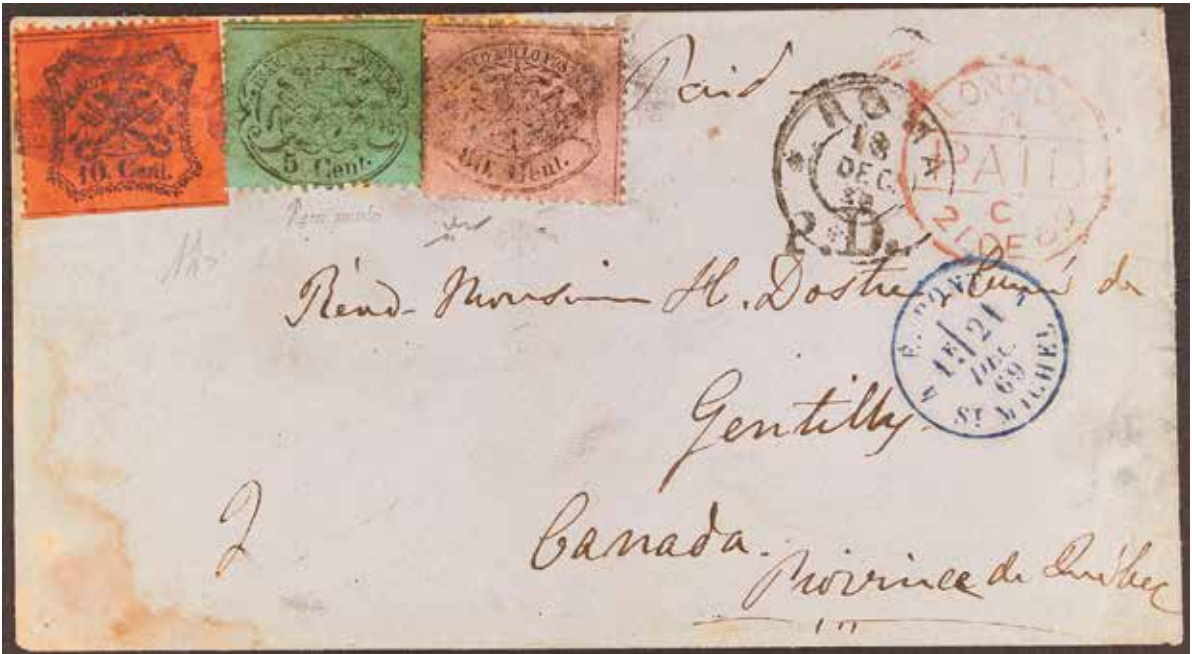 10 Cent.
5 Cent.
80 Cent.
Paid
ROMA
18
DEC
P.D.
LONDON
PAID
C
27 DE 69
E. PONT.
21
DEC.
69
ST MICHEL
Révd. Monsieur H. Dostie Curé de
Gentilly
Canada.
Province de Québec